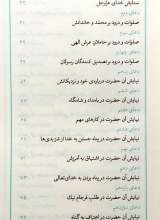 ستایش خدای عزوجل ۲۳
دعای دوم
صلوات و درود بر محمد و خاندانش ۳۱
دعای سوم
صلوات و درود بر حاملان عرش الهی
دعای چهارم
صلوات و درود بر تصدیق کنندگان رسولان
دعای پنجم
نیایش آن حضرت درباره‌ی خود و نزدیکانش
دعای ششم
نیایش آن حضرت در بامداد و شامگاه
دعای هفتم
نیایش آن حضرت در کارهای مهم
دعای هشتم
نیایش آن حضرت در پناه جستن به خدا از شر بدی‌ها
دعای نهم
نیایش آن حضرت در اشتیاق به آمرزش
دعای دهم
نیایش آن حضرت در پناه بردن به خدای تعالی
دعای یازدهم
نیایش آن حضرت در طلب فرجام نیک
دعای دوازدهم
نیایش آن حضرت در اعتراف به گناه